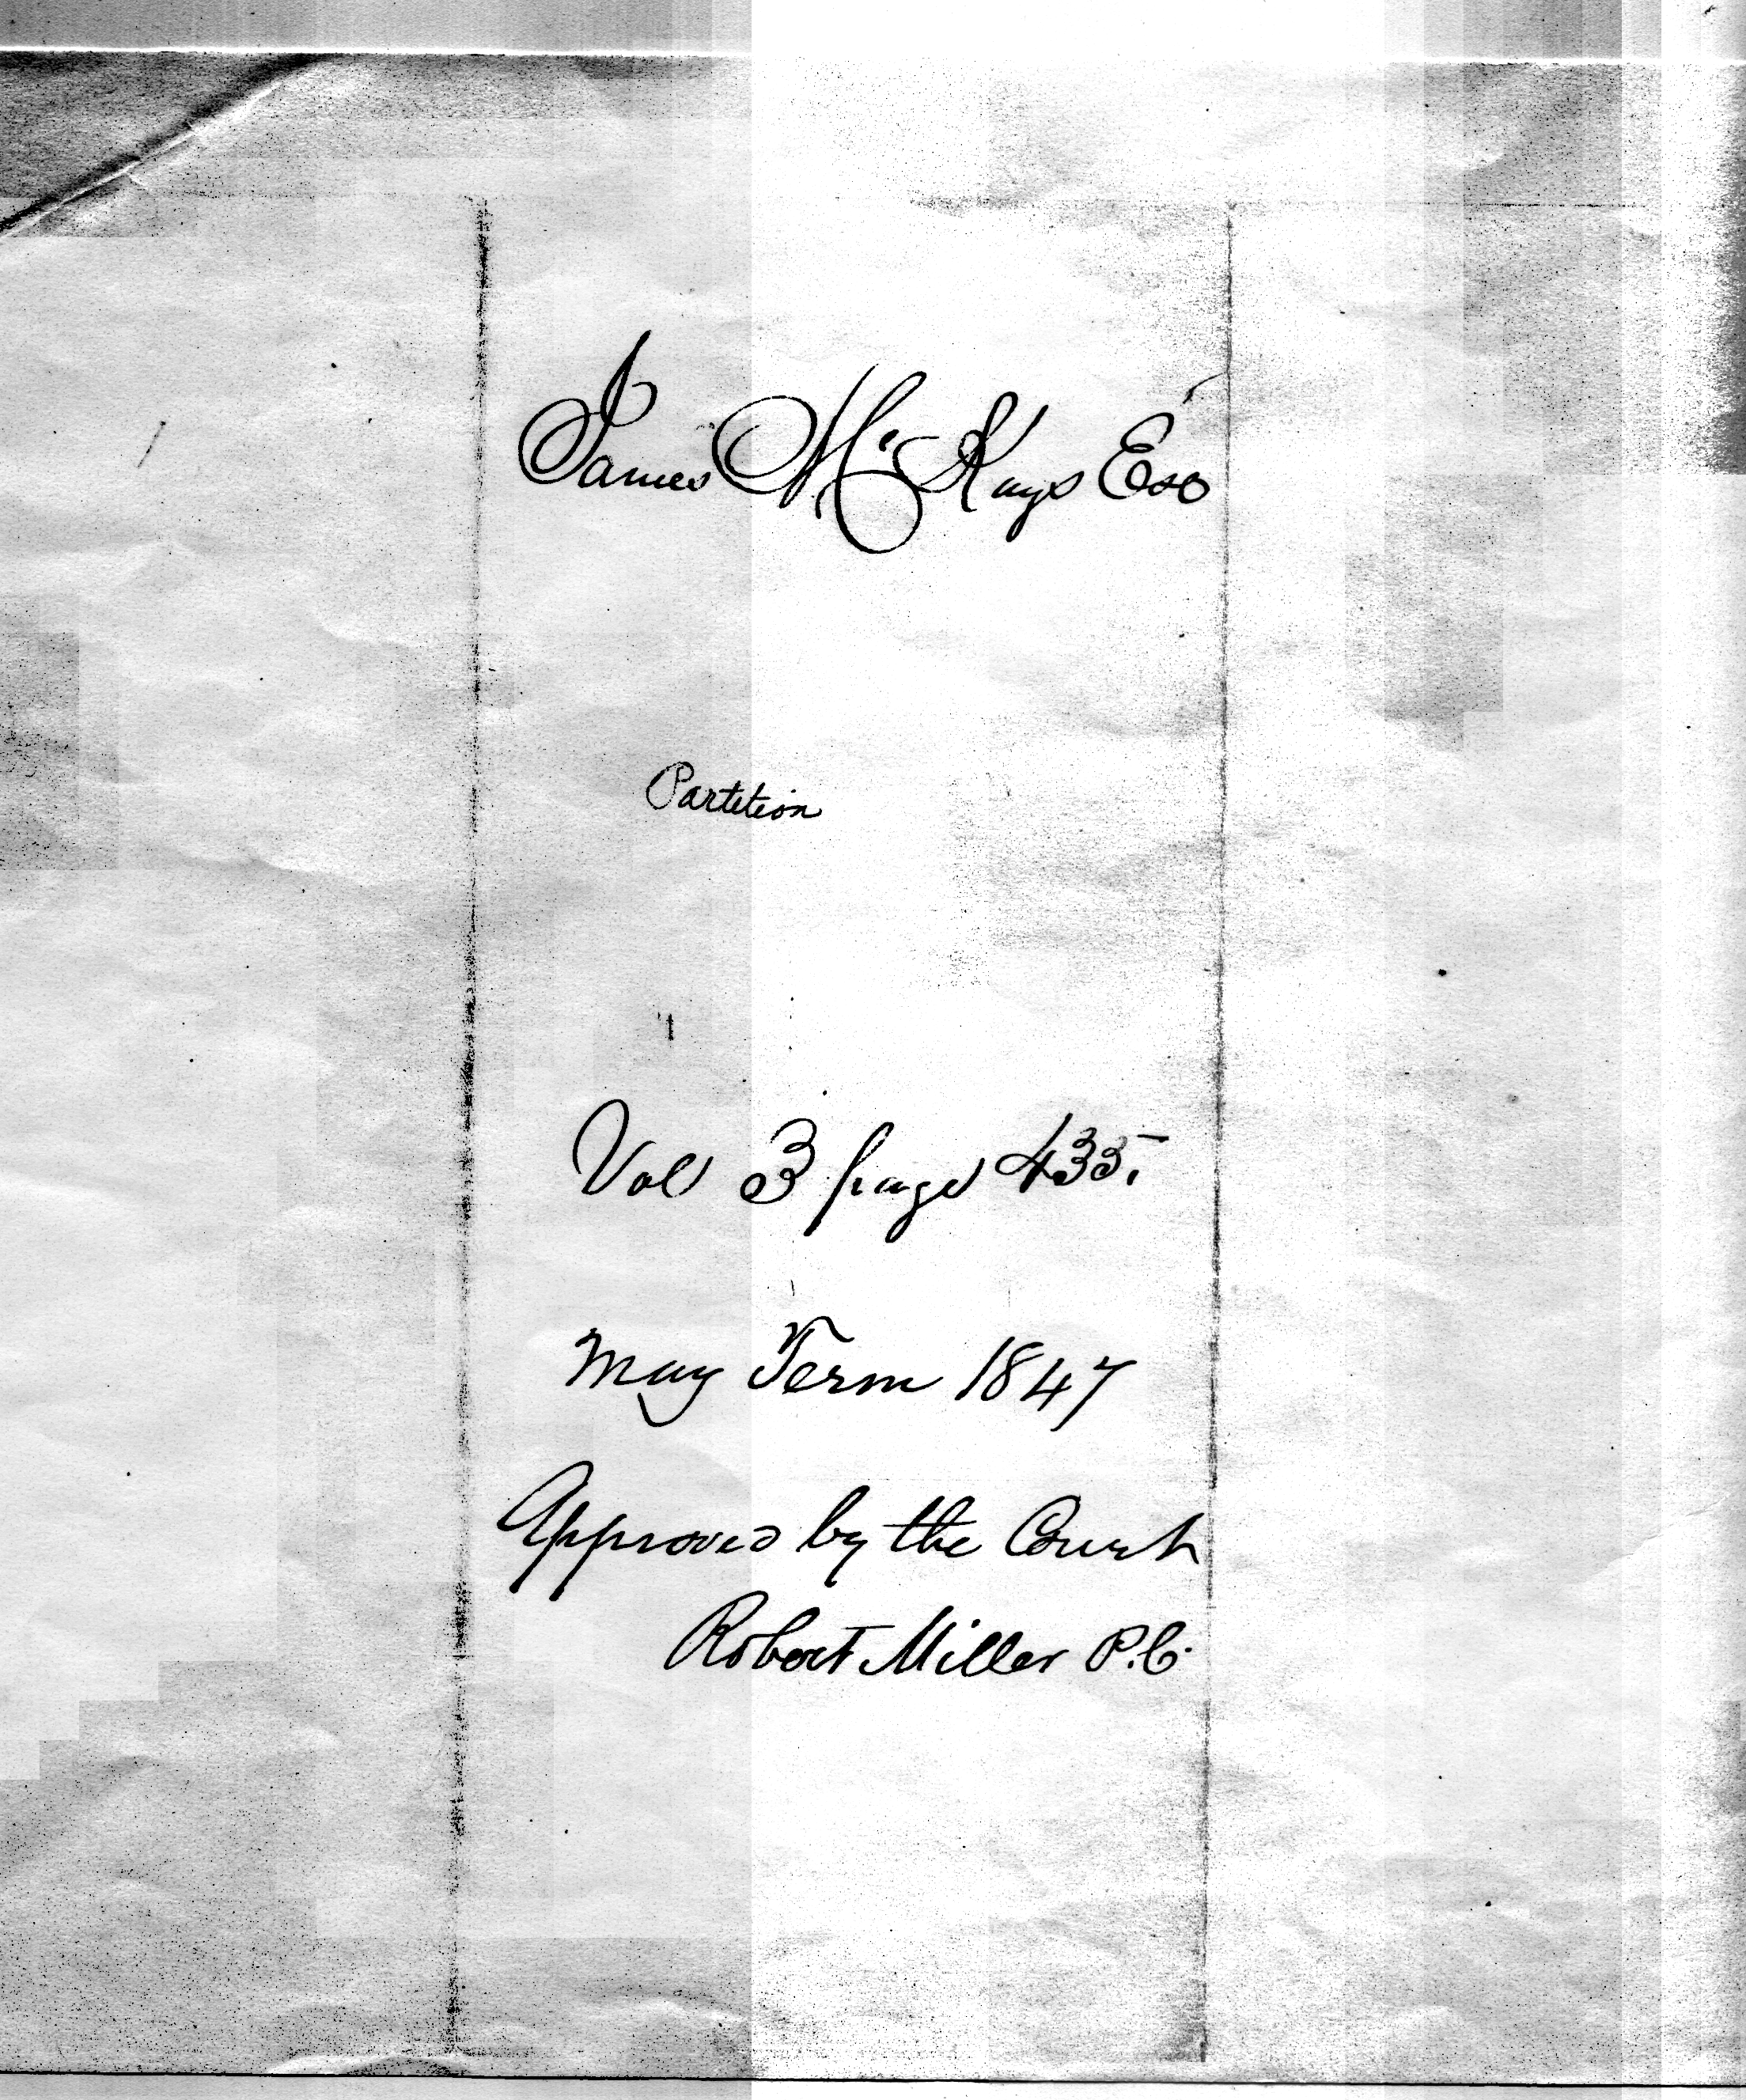 James McKays Est
Partition
Vol 3 page 435.
May Term 1847
Approved by the Court
Robert Miller P.C.